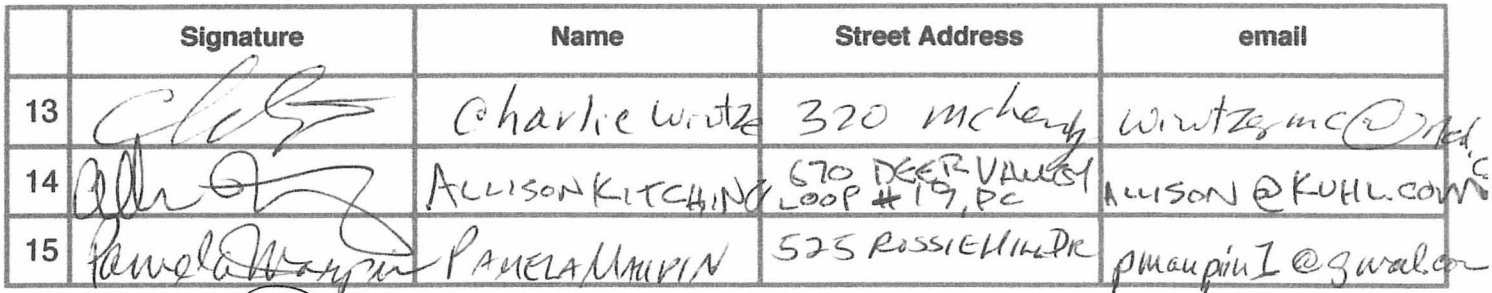 Signature Name Street Address email
13 Charlie 320 McHenry
14 ALLISON KITCHING 670 DEER VALLEY
LOOP #19, PC ALLISON@KUHL.COM
15 Pamela Maupin PAMELA MAUPIN 525 ROSSIE HILL DR pmaupin1@gmail.com